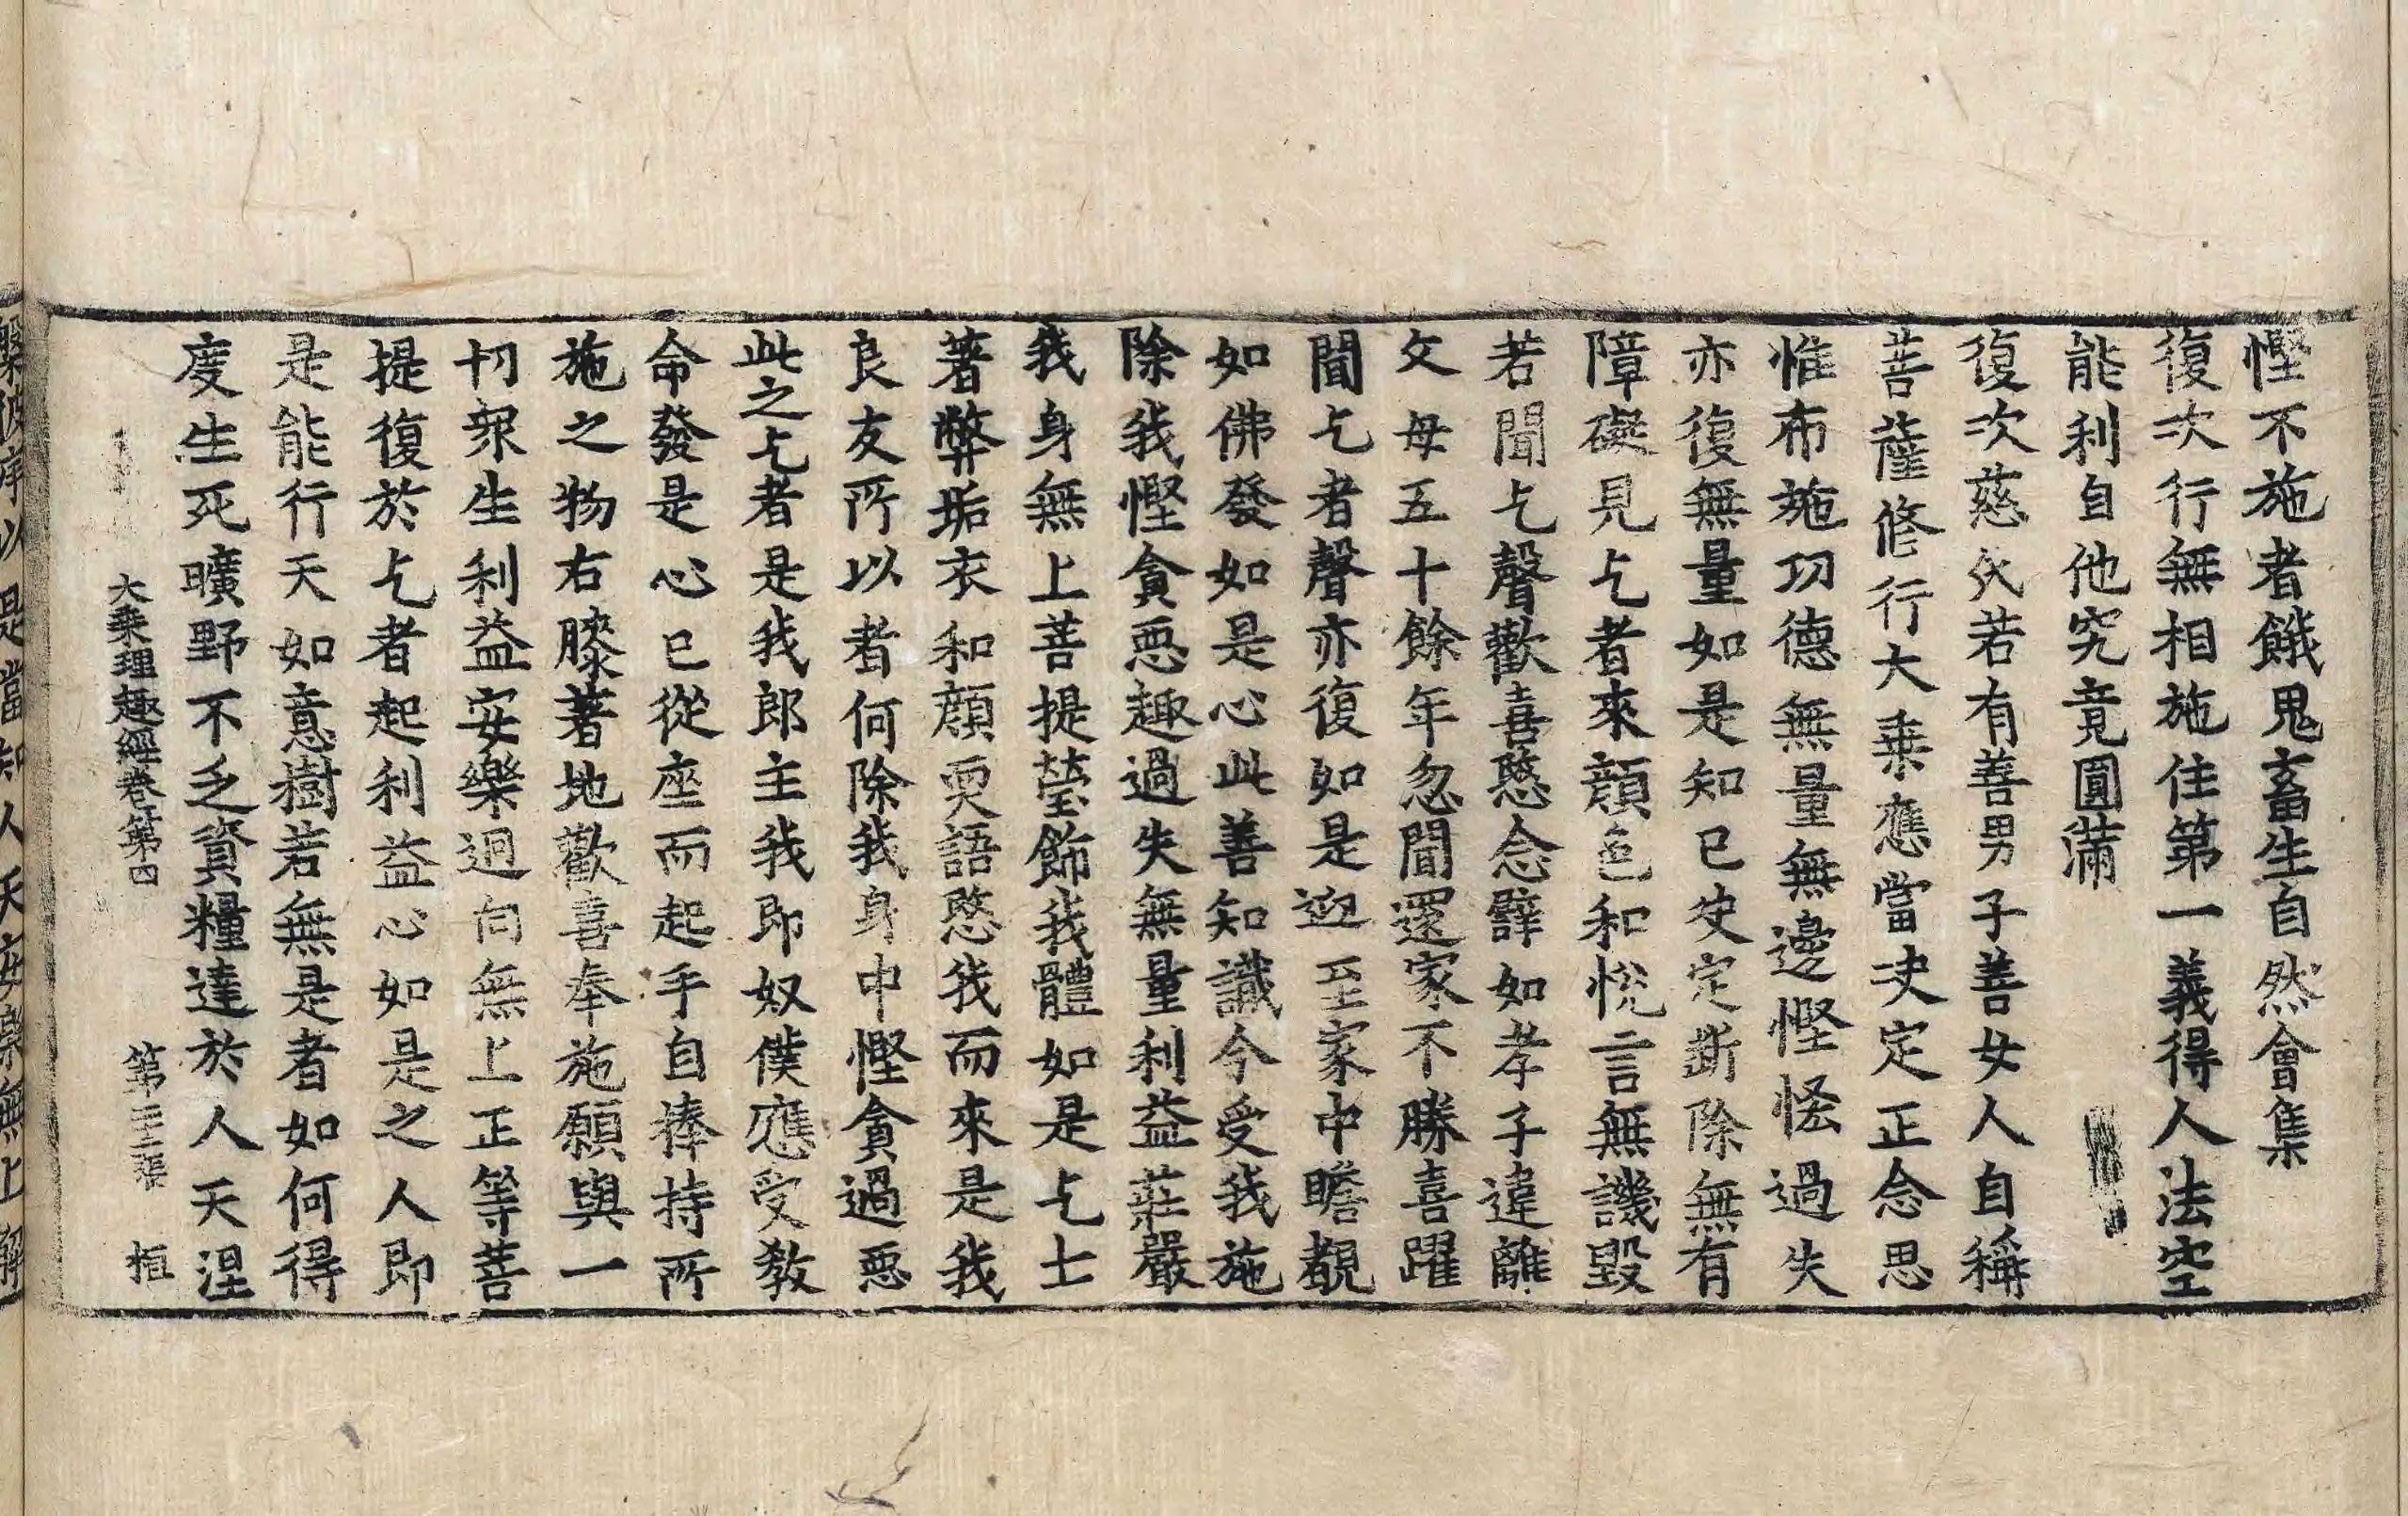 慳不施者餓鬼畜生自然會集
復次行無相施住第一義得人法空
能利自他究竟圓滿
復次慈氏若有善男子善女人自稱
菩薩修行大乗應當决定正念思
惟布施功德無量無邊慳悋過失
亦復無量如是知已决定斷除無有
障礙見乞者來顔色和悅言無譏毀
若聞乞聲歡喜愍念譬如孝子違離
父母五十餘年忽聞還家不勝喜躍
聞乞者聲亦復如是迎至家中瞻覩
如佛發如是心此善知識今受我施
除我慳貪惡趣過失無量利益莊嚴
我身無上菩提瑩飾我體如是乞士
著弊垢衣和顔耎語愍我而來是我
良友所以者何除我身中慳貪過惡
此之乞者是我郎主我即奴僕應受教
命發是心已從座而起手自捧持所
施之物右膝著地歡喜奉施願與一
切衆生利益安樂迴向無上正等菩
提復於乞者起利益心如是之人即
是能行天如意樹若無是者如何得
度生死曠野不乏資糧達於人天涅
大乗理趣經卷第四 第三張 桓
槃彼岸以是當知人天安樂無上解